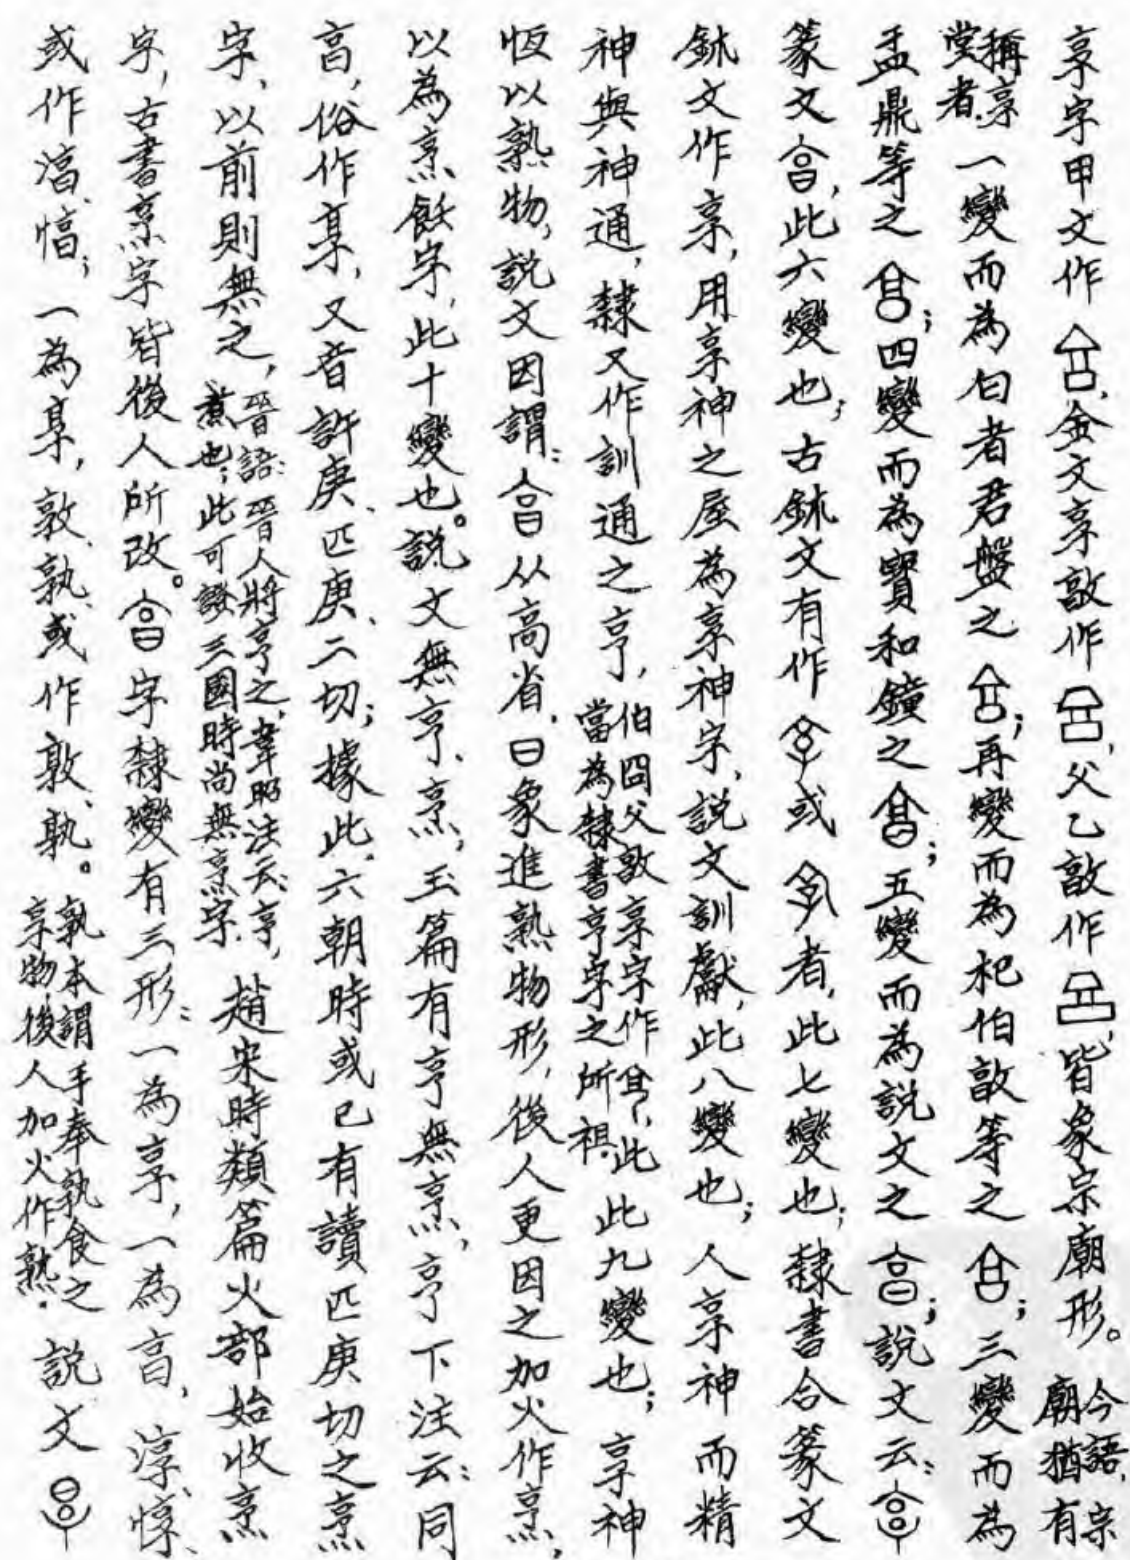 享字甲文作，金文享敦作，父乙敦作，皆象宗廟形。今語，宗廟猶有
稱享堂者。一變而為白者君盤之；再變而為杞伯敦等之；三變而為
盂鼎等之；四變而為寶和鐘之；五變而為說文之；說文云：
篆文，此六變也；古鉥文有作或者，此七變也；隸書合篆文
鉥文作享，用享神之屋為享神字，說文訓獻，此八變也；人享神而精
神與神通，隸又作訓通之亨，伯囧父敦享字作，此當為隸書亨字之所祖。此九變也；享神
恆以熟物，說文因謂：从高省，曰象進熟物形，後人更因之加火作烹，
以為烹飪字，此十變也。說文無亨、烹，玉篇有亨無烹，亨下注云：同
亯，俗作享，又音許庚、匹庚、二切；據此，六朝時或已有讀匹庚切之烹
字，以前則無之，晉語：晉人將亨之，韋昭注云：亨，煮也；此可證三國時尚無烹字。趙宋時類篇火部始收烹
字，古書烹字皆後人所改。字隸變有三形：一為享，一為亯，淳、惇、
或作𣹢、㥁；一為享，敦、孰、或作敦、孰。孰本謂手奉孰食之享物，後人加火作熟。說文